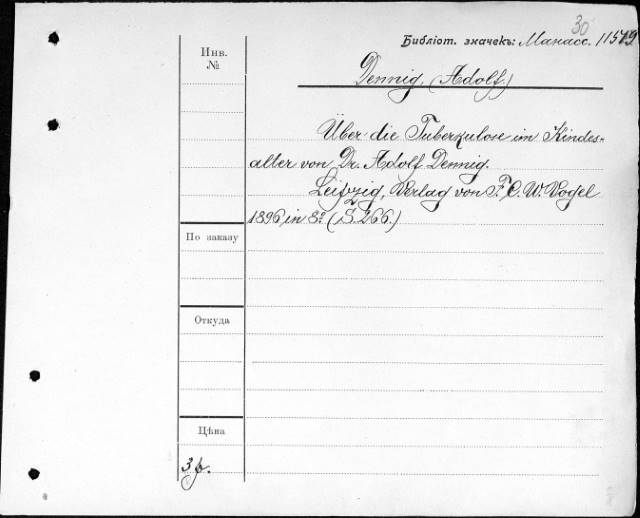 30
Библіот. значекъ: Манасс. 11579
Инв.
№
Dennig, (Adolf.)
Über die Tuberkulose im Kindes=
alter von Dr. Adolf Dennig.
Leipzig, Verlag von F. C. W. Vogel
1896, in 8º (S. 266.)
По заказу
Откуда
Цѣна
3 р.